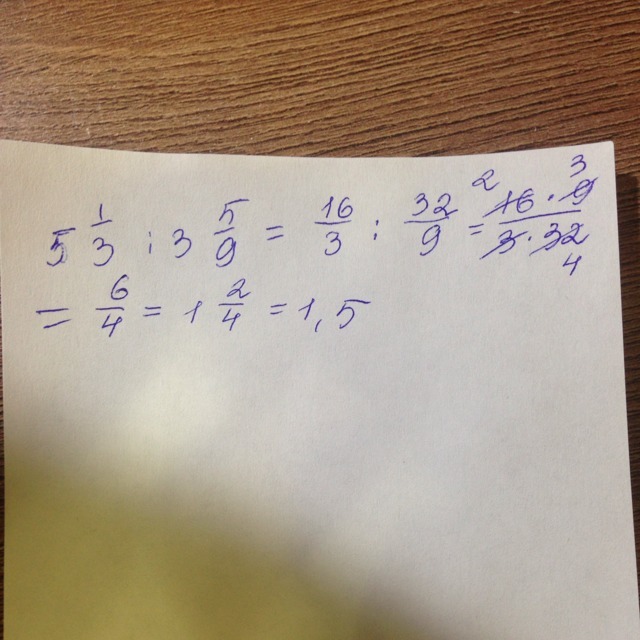 5 1/3 : 3 5/9 = 16/3 : 32/9 = 2 16 · 9 3 / 3 · 32 4
= 6/4 = 1 2/4 = 1,5